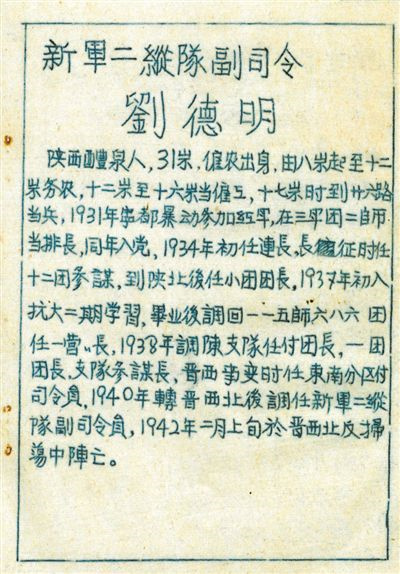 新軍二縱隊副司令
劉德明
陕西醴泉人，31岁，僱农出身，由八岁起至十二
岁务农，十二岁至十六岁当僱工，十七岁时到廿六路
当兵，1931年寧都暴动参加红军，在三军团二师
当排長，同年入党，1934年初任連長，長征时任
十二团参謀，到陕北後任小团团長，1937年初入
抗大二期学習，畢業後調回一一五師六八六团
任一营〃長，1938年調陳支隊任付团長，一团
团長，支隊参謀長，晋西事变时任東南分区付
司令員，1940年轉晋西北後調任新軍二縱
隊副司令員，1942年二月上旬於晋西北反掃
蕩中陣亡。